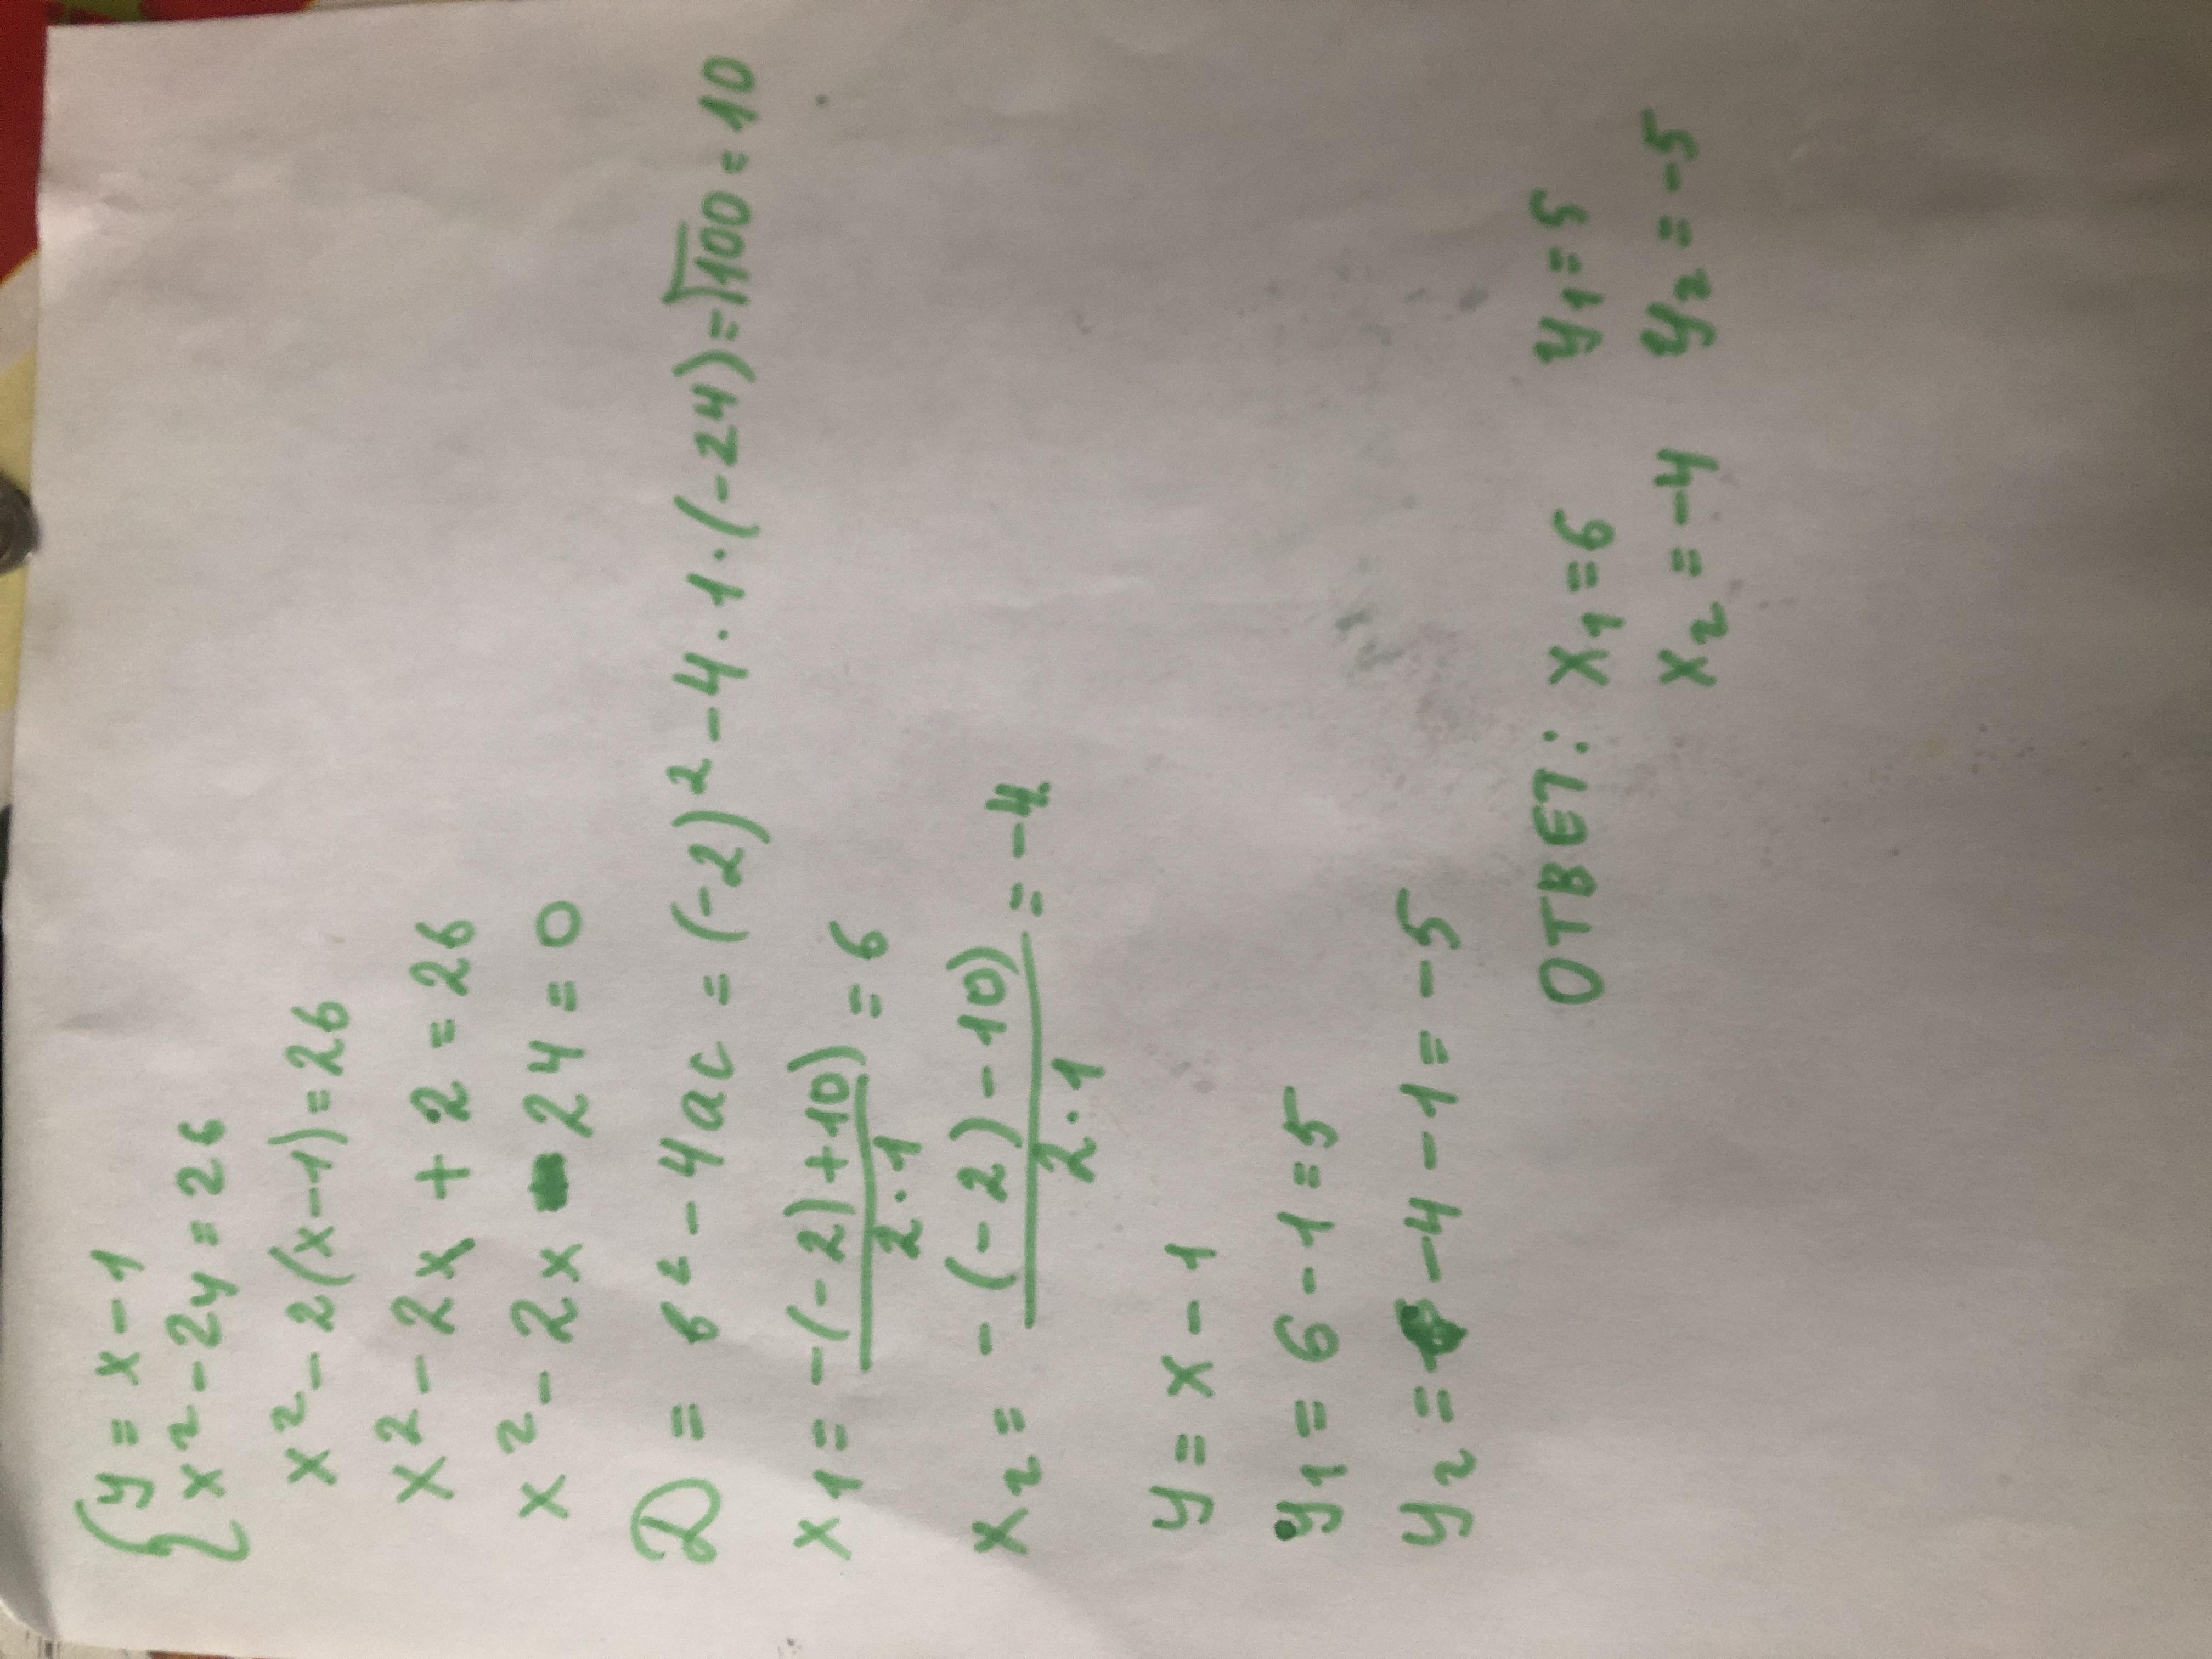 { y = x - 1
x² - 2y = 26
x² - 2(x-1) = 26
x² - 2x + 2 = 26
x² - 2x - 24 = 0
D = b² - 4ac = (-2)² - 4 · 1 · (-24) = √100 = 10
x₁ = (-(-2)+10)/(2·1) = 6
x₂ = (-(-2)-10)/(2·1) = -4
y = x - 1
y₁ = 6 - 1 = 5
y₂ = -4 - 1 = -5
ОТВЕТ: x₁ = 6 y₁ = 5
x₂ = -4 y₂ = -5